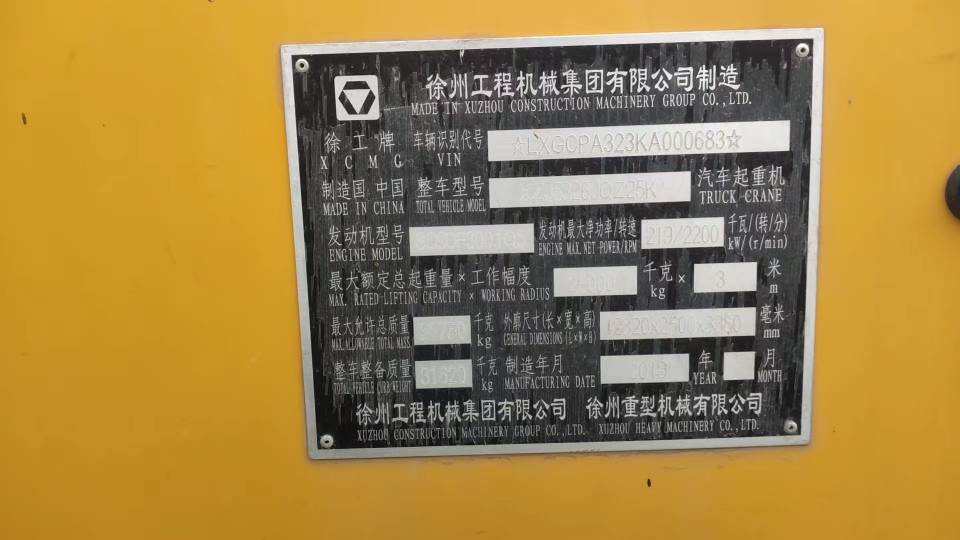 徐州工程机械集团有限公司制造
MADE IN XUZHOU CONSTRUCTION MACHINERY GROUP CO.,LTD.
徐工牌 车辆识别代号 ☆LXGCPA323KA000683☆
XCMG VIN
制造国 中国 整车型号 汽车起重机
MADE IN CHINA TOTAL VEHICLE MODEL TRUCK CRANE
发动机型号 发动机最大净功率/转速 219/2200 千瓦/(转/分)
ENGINE MODEL ENGINE MAX.NET POWER/RPM kW/(r/min)
最大额定总起重量×工作幅度 千克× 3 米
MAX. RATED LIFTING CAPACITY × WORKING RADIUS kg m
最大允许总质量 千克 外廓尺寸(长×宽×高) 毫米
MAX.ALLOWABLE TOTAL MASS kg GENERAL DIMENSIONS (L×W×H) mm
整车整备质量 31620 千克 制造年月 年 月
TOTAL VEHICLE CURB WEIGHT kg MANUFACTURING DATE YEAR MONTH
徐州工程机械集团有限公司 徐州重型机械有限公司
XUZHOU CONSTRUCTION MACHINERY GROUP CO.,LTD. XUZHOU HEAVY MACHINERY CO.,LTD.